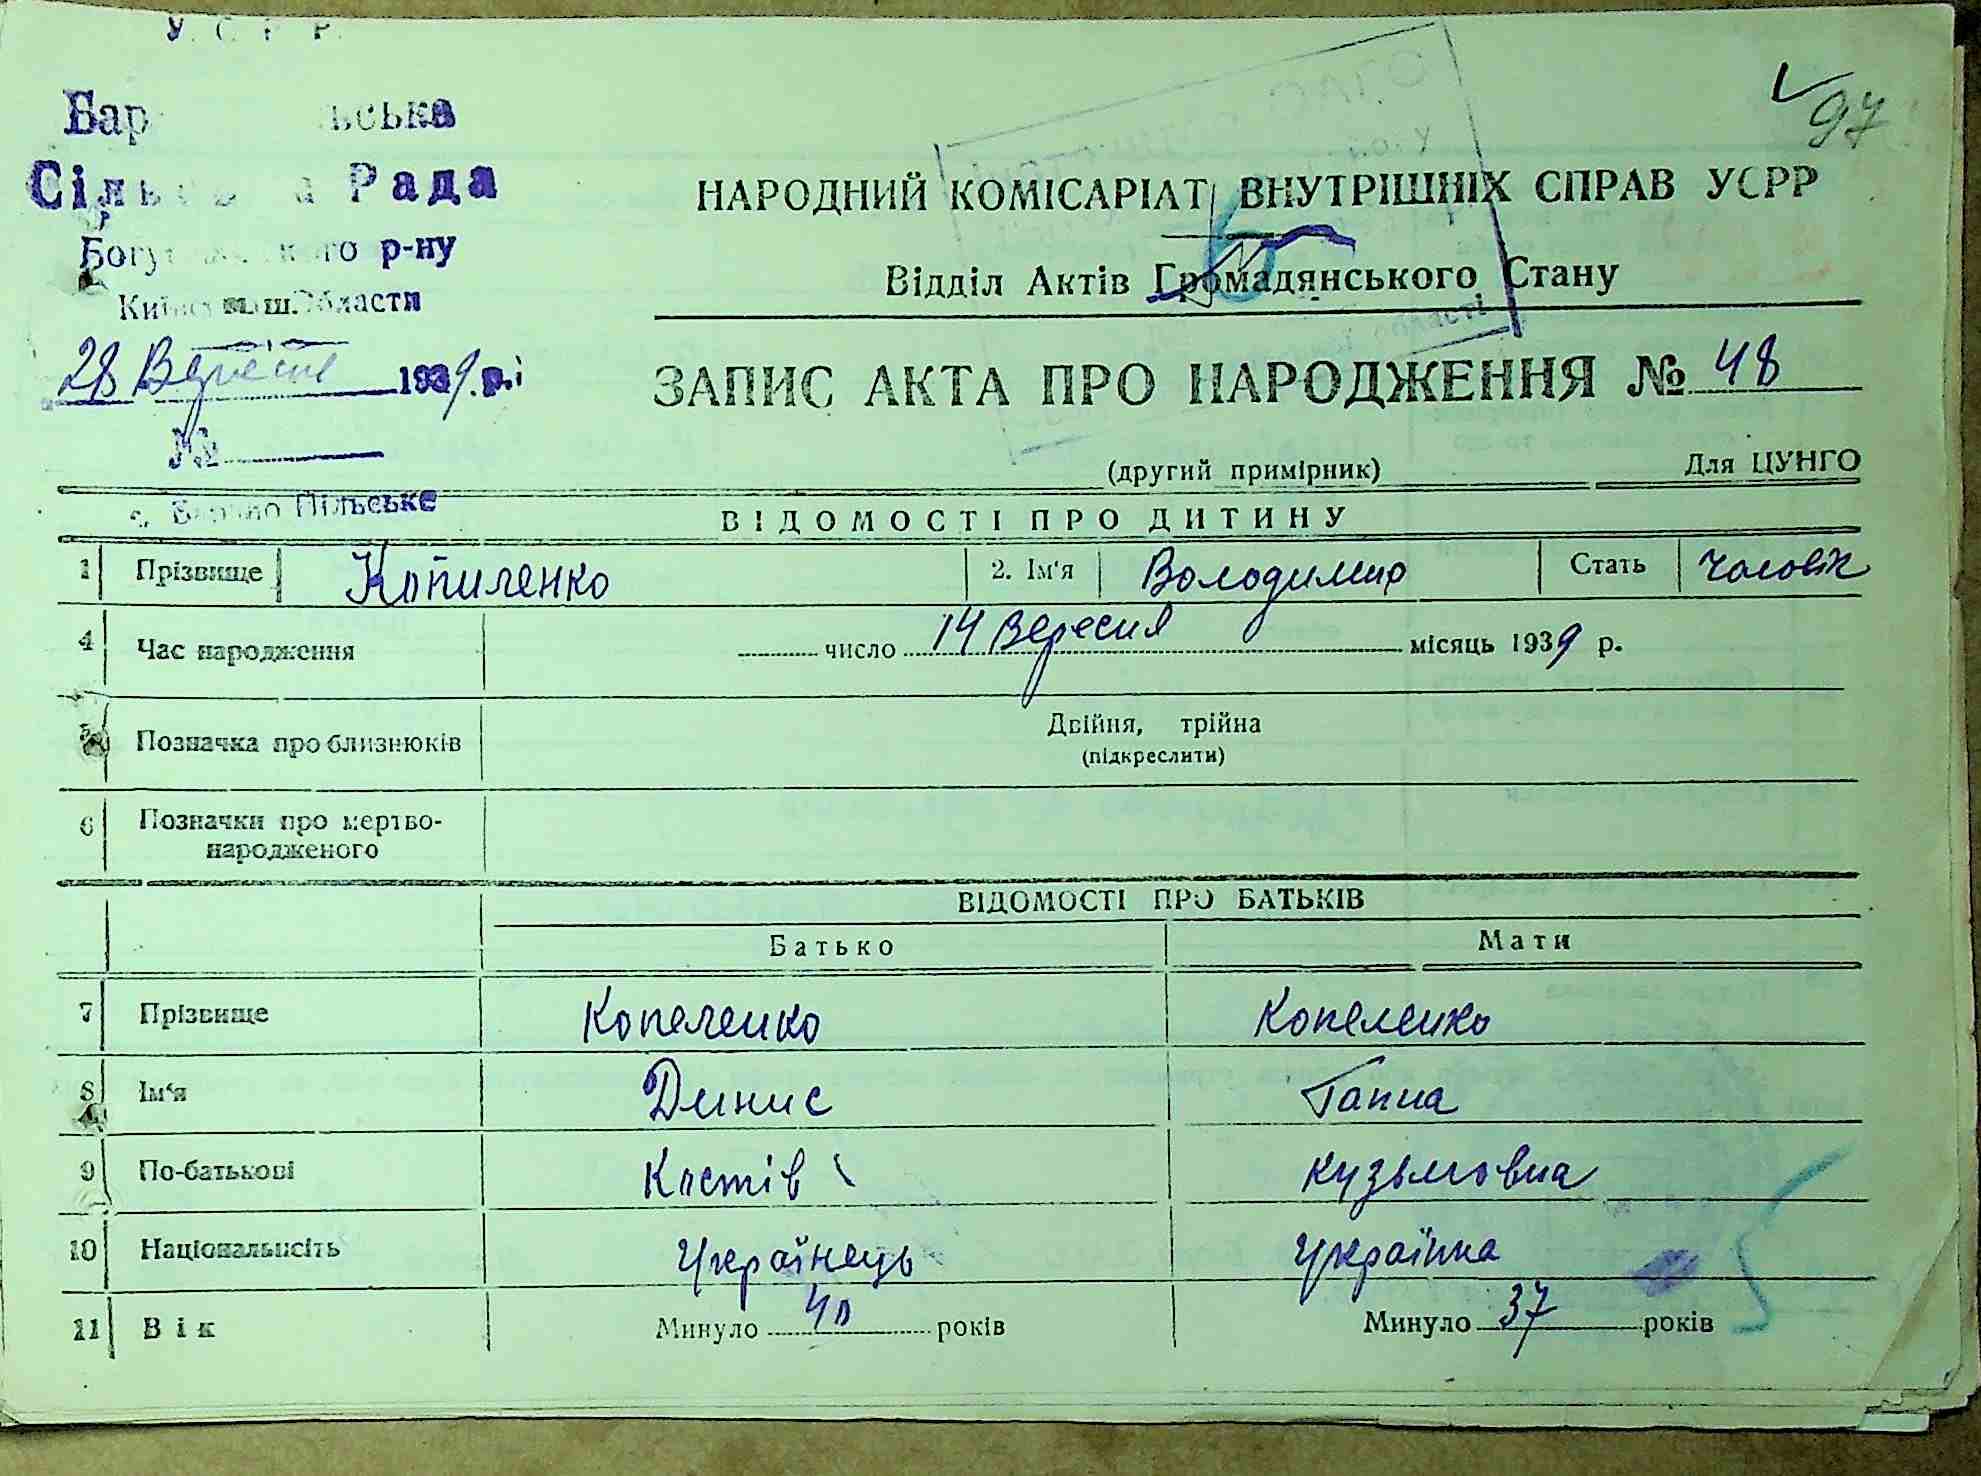 У. С. Р. Р.
97
Сільська Рада
НАРОДНИЙ КОМІСАРІАТ ВНУТРІШНІХ СПРАВ УСРР
р-ну
Відділ Актів Громадянського Стану
Області
28 Вересня 1939 р.
ЗАПИС АКТА ПРО НАРОДЖЕННЯ № 48
№
(другий примірник) Для ЦУНГО
с. Пільське
ВІДОМОСТІ ПРО ДИТИНУ
1 Прізвище Копиленко 2. Ім'я Володимир Стать чоловік
4 Час народження число 14 Вересня місяць 1939 р.
5 Позначка про близнюків Двійня, трійна
(підкреслити)
6 Позначки про мертво-
народженого
ВІДОМОСТІ ПРО БАТЬКІВ
Батько Мати
7 Прізвище Копеленко Копеленко
8 Ім'я Динис Ганна
9 По-батькові Костів Кузьмовна
10 Національність Українець Українка
11 Вік Минуло 40 років Минуло 37 років